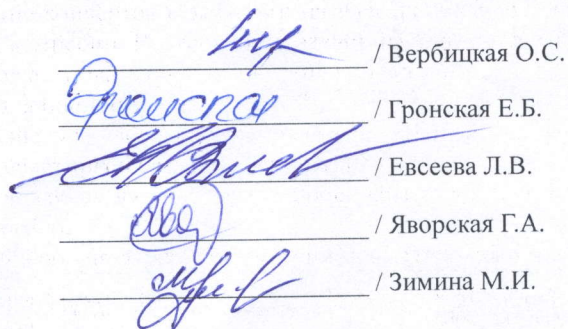 / Вербицкая О.С.
/ Гронская Е.Б.
/ Евсеева Л.В.
/ Яворская Г.А.
/ Зимина М.И.